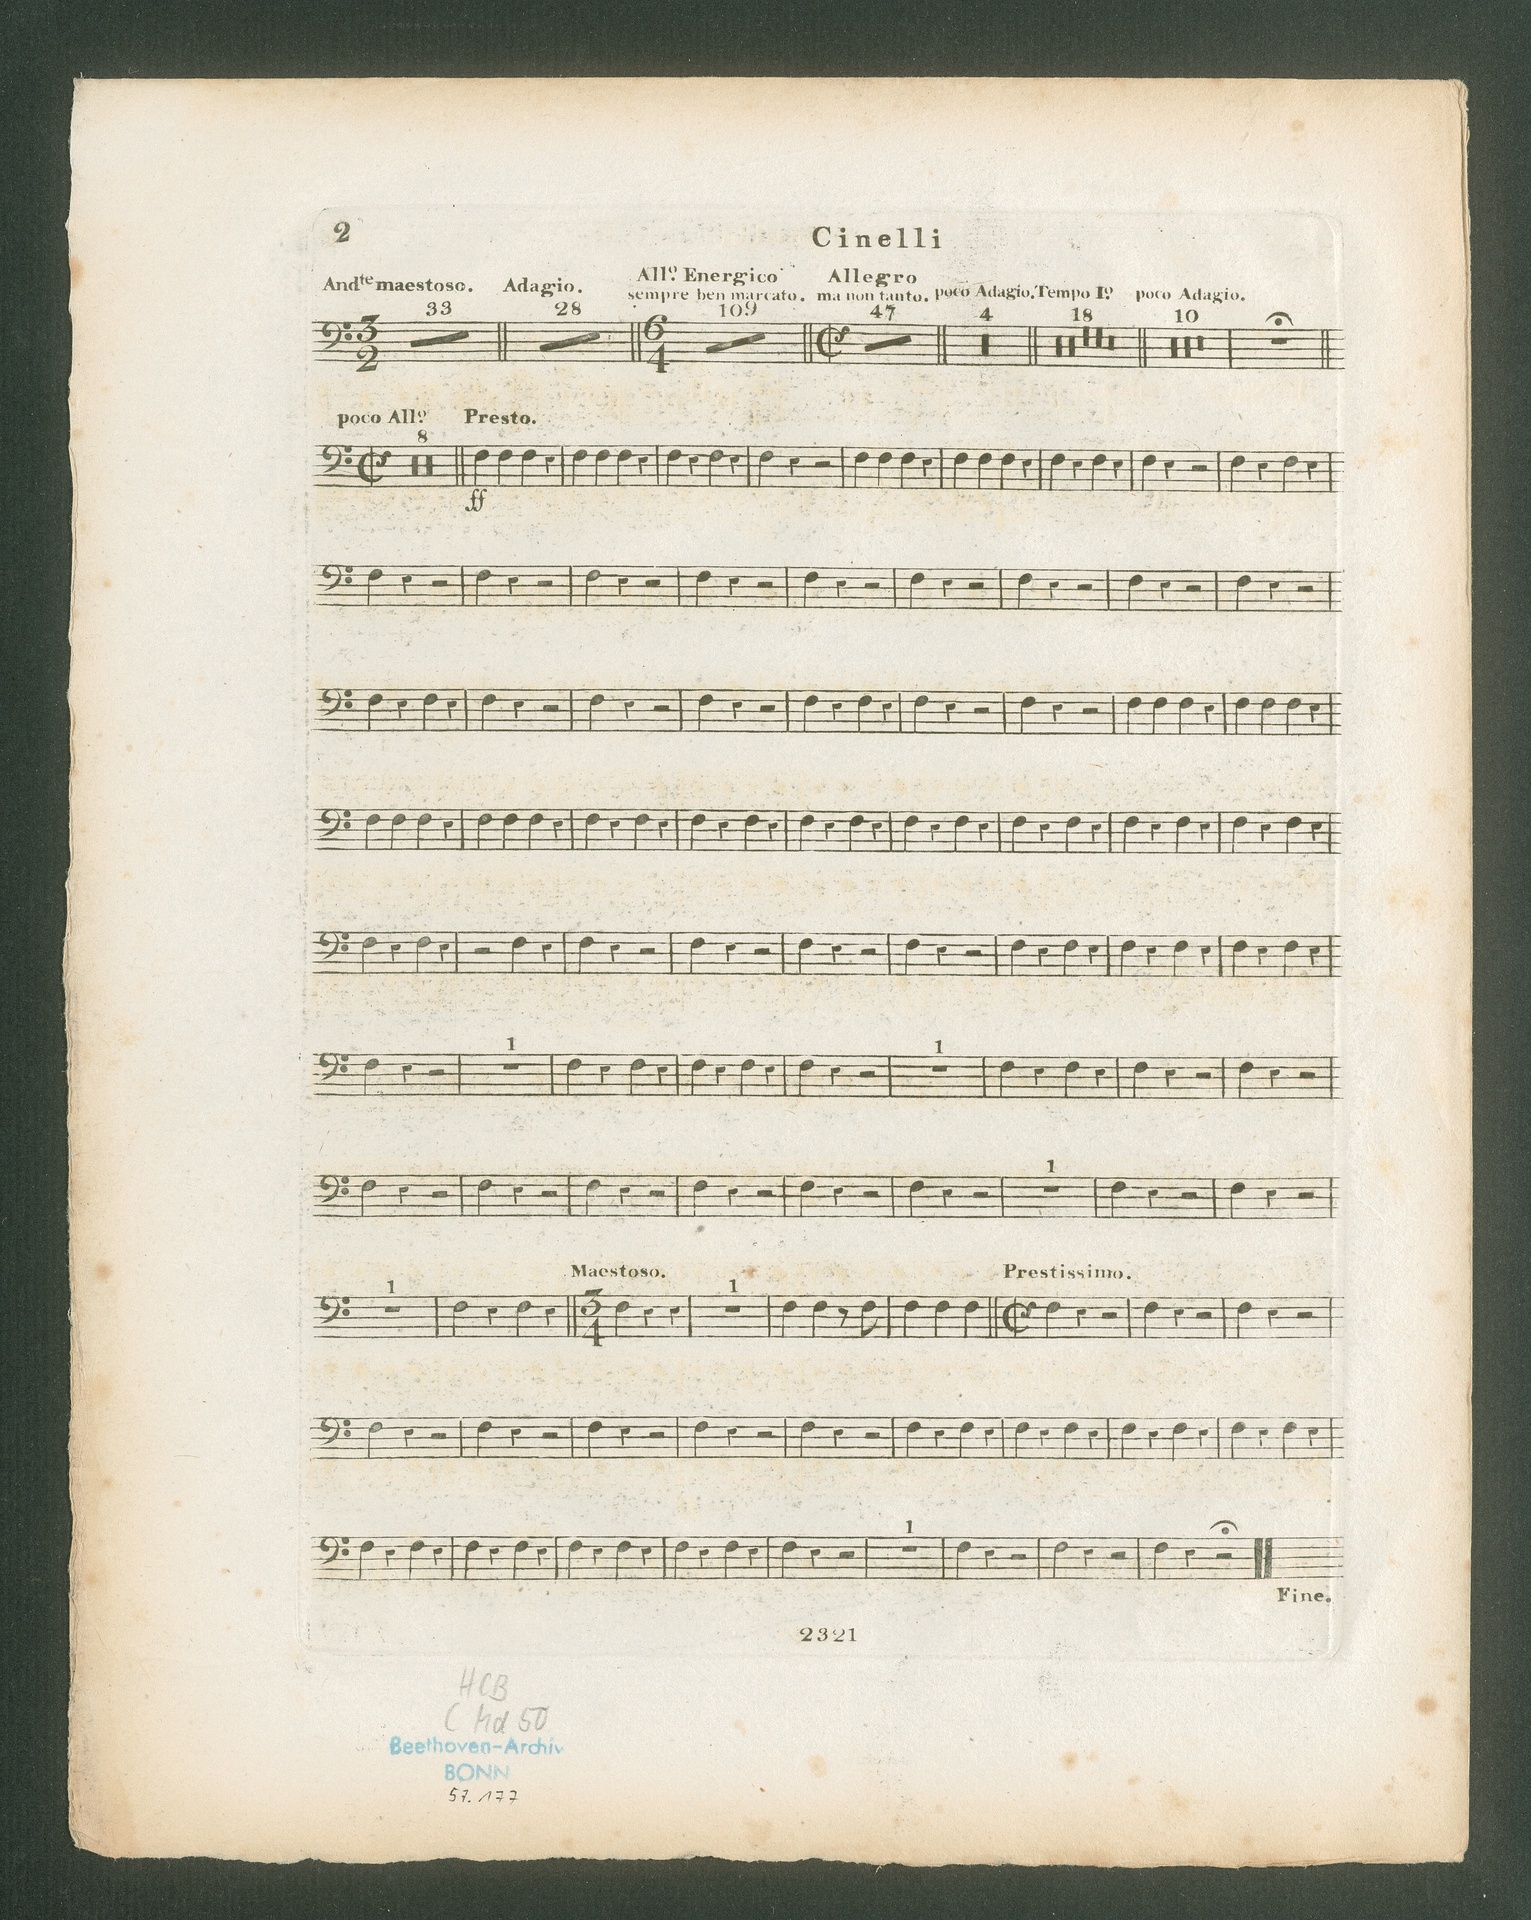 2
Cinelli
And.te maestoso. Adagio. All.o Energico sempre ben marcato. Allegro ma non tanto. poco Adagio. Tempo I.o poco Adagio.
33 28 109 47 4 18 10
3 2 6 4
poco All.o Presto.
8
ff
1 1
1
Maestoso. Prestissimo.
1 1
3 4
1
Fine.
2321
HCB
C Md 50
Beethoven-Archiv
BONN
57. 177